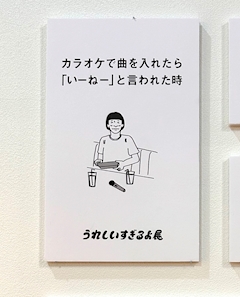 カラオケで曲を入れたら
「いーねー」と言われた時
うれしいすぎるよ展